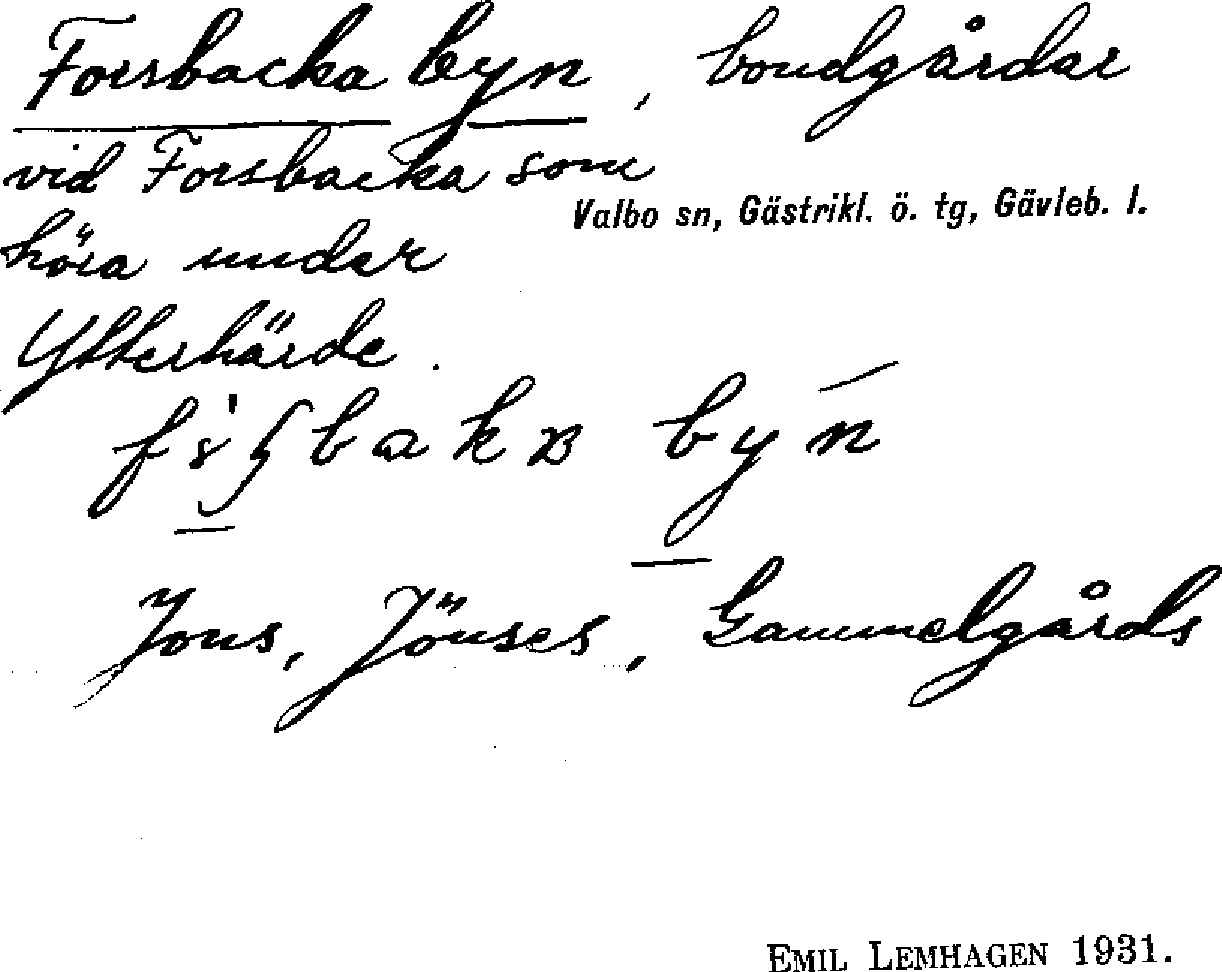 Forsbacka byn, bondgårdar
vid Forsbacka som
Valbo sn, Gästrikl. ö. tg, Gävleb. l.
höra under
Ytterhärde.
byn
Jons, Jönses, Gammelgårds
EMIL LEMHAGEN 1931.